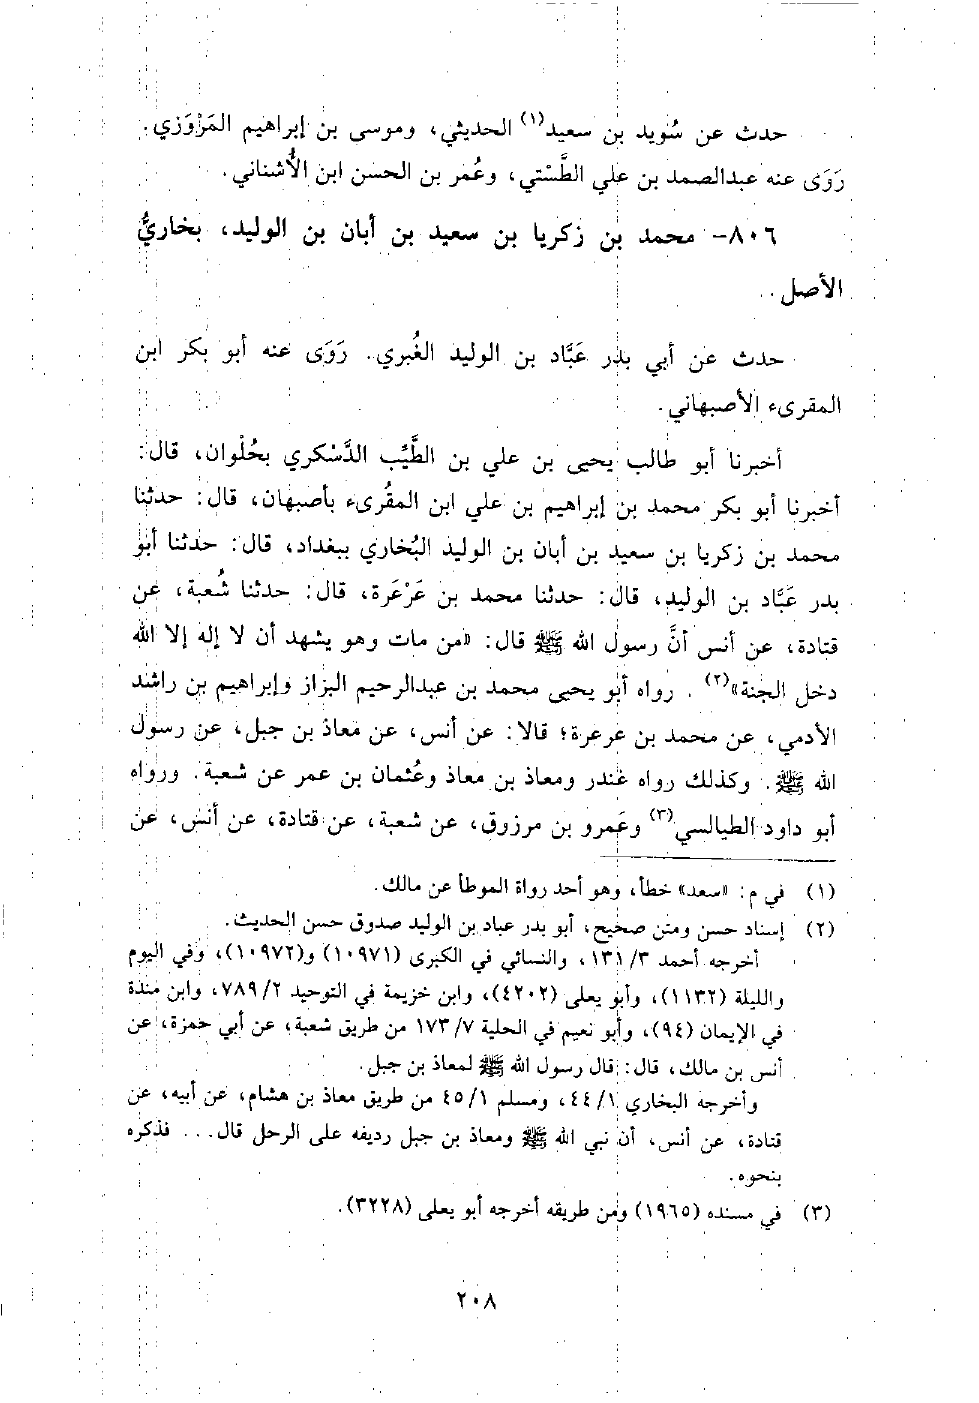 حدث عن سُويد بن سعيد(١) الحديثي، وموسى بن إبراهيم المَرْوَزي.
رَوَى عنه عبدالصمد بن علي الطَّسْتي، وعُمر بن الحسن ابن الأُشناني.
٨٠٦- محمد بن زكريا بن سعيد بن أبان بن الوليد، بخاريُّ
الأصل.
حدث عن أبي بدر عَبَّاد بن الوليد الغُبري. رَوَى عنه أبو بكر ابن
المقرىء الأصبهاني.
أخبرنا أبو طالب يحيى بن علي بن الطَّيِّب الدَّسْكري بحُلْوان، قال:
أخبرنا أبو بكر محمد بن إبراهيم بن علي ابن المقُرىء بأصبهان، قال: حدثنا
محمد بن زكريا بن سعيد بن أبان بن الوليد البُخاري ببغداد، قال: حدثنا أبو
بدر عَبَّاد بن الوليد، قال: حدثنا محمد بن عَرْعَرة، قال: حدثنا شُعبة، عن
قتادة، عن أنس أنَّ رسول الله ﷺ قال: «من مات وهو يشهد أن لا إله إلا الله
دخل الجنة»(٢). رواه أبو يحيى محمد بن عبدالرحيم البزاز وإبراهيم بن راشد
الأدمي، عن محمد بن عرعرة؛ قالا: عن أنس، عن معاذ بن جبل، عن رسول
الله ﷺ. وكذلك رواه غندر ومعاذ بن معاذ وعُثمان بن عمر عن شعبة. ورواه
أبو داود الطيالسي(٣) وعَمرو بن مرزوق، عن شعبة، عن قتادة، عن أنس، عن
(١) في م: «سعد» خطأ، وهو أحد رواة الموطأ عن مالك.
(٢) إسناد حسن ومتن صحيح، أبو بدر عباد بن الوليد صدوق حسن الحديث.
أخرجه أحمد ٣/ ١٣١، والنسائي في الكبرى (١٠٩٧١) و(١٠٩٧٢)، وفي اليوم
والليلة (١١٣٢)، وأبو يعلى (٤٢٠٢)، وابن خزيمة في التوحيد ٢/ ٧٨٩، وابن مندة
في الإيمان (٩٤)، وأبو نعيم في الحلية ٧/ ١٧٣ من طريق شعبة، عن أبي حمزة، عن
أنس بن مالك، قال: قال رسول الله ﷺ لمعاذ بن جبل.
وأخرجه البخاري ١/ ٤٤، ومسلم ١/ ٤٥ من طريق معاذ بن هشام، عن أبيه، عن
قتادة، عن أنس، أن نبي الله ﷺ ومعاذ بن جبل رديفه على الرحل قال... فذكره
بنحوه.
(٣) في مسنده (١٩٦٥) ومن طريقه أخرجه أبو يعلى (٣٢٢٨).
٢٠٨